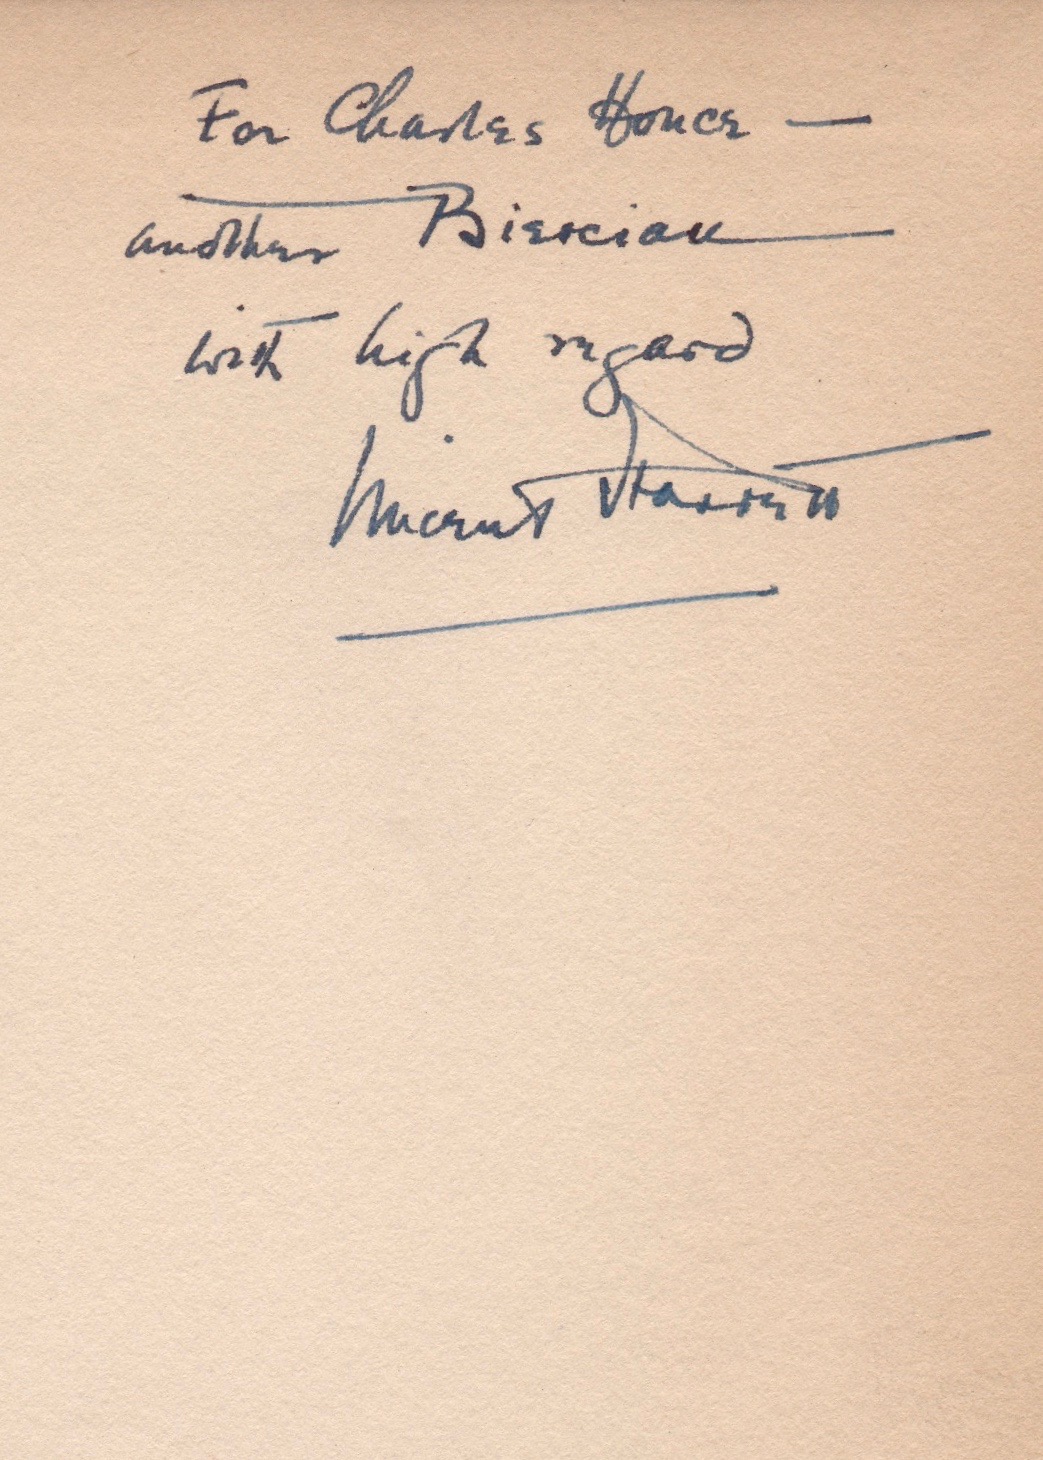 For Charles Honce —
another Biercian
with high regard
Vincent Starrett